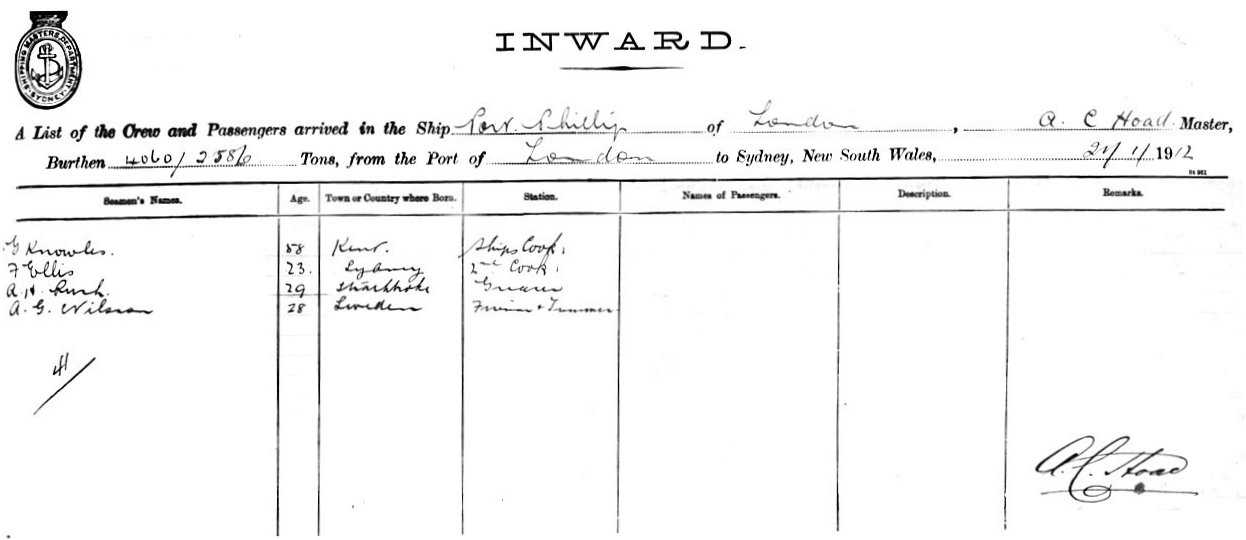 SHIPPING MASTERS DEPARTMENT SYDNEY
INWARD.
A List of the Crew and Passengers arrived in the Ship Port Phillip of London, A. C Hoad Master,
Burthen 4060/2586 Tons, from the Port of London to Sydney, New South Wales, 1912
Seamen's Names. Age. Town or Country where Born. Station. Names of Passengers. Description. Remarks.
G Knowles. 58 Kent. Ships Cook.
F Ellis 23. Sydney 2nd Cook.
A. H. 29 Greaser
A. G. Nilsson 28 Sweden Fireman + Trimmer
4/
A. C. Hoad